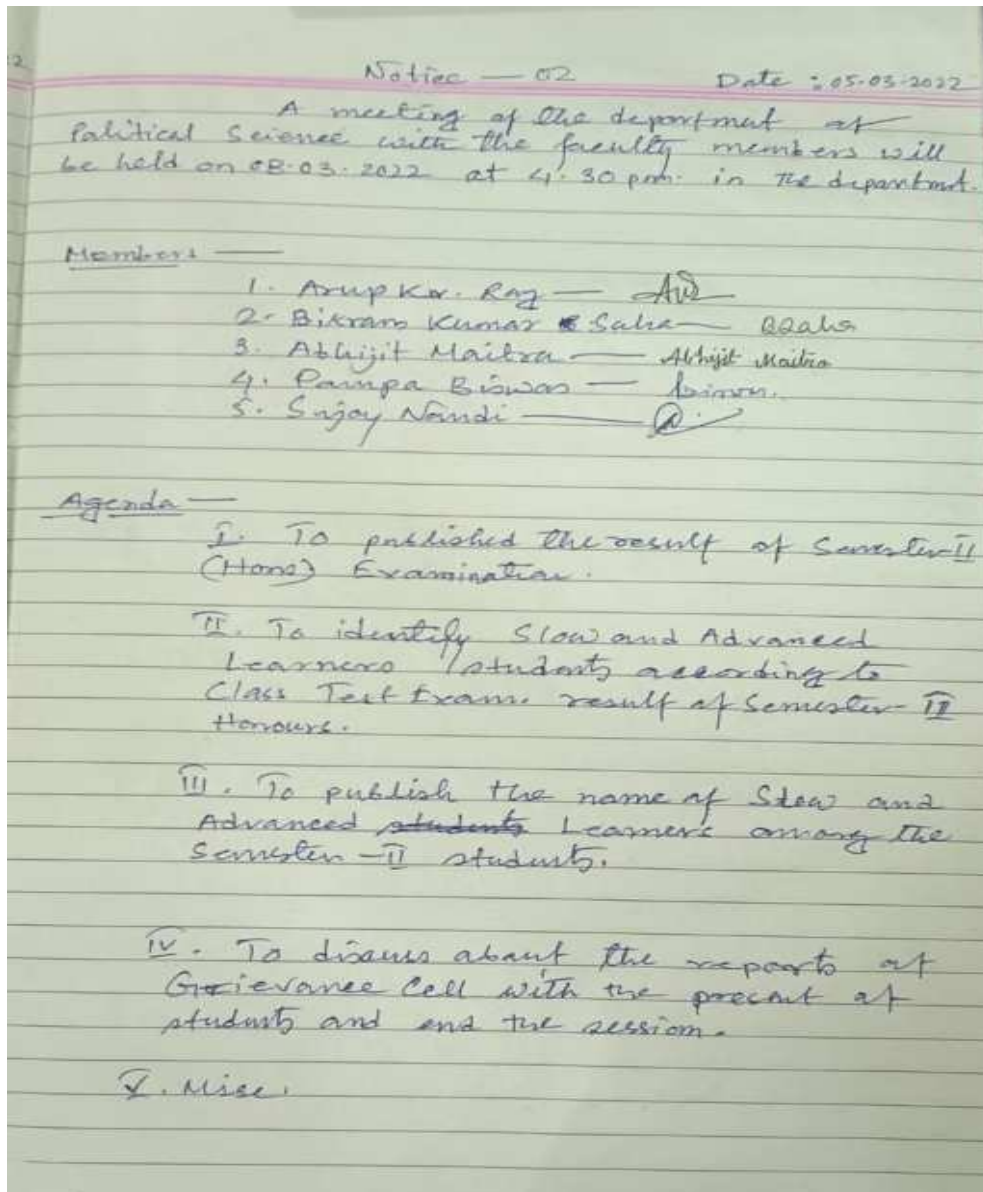 2
Notice — 02 Date : 05-03-2022
A meeting of the department of
Political Science with the faculty members will
be held on 08-03-2022 at 4.30 pm. in the department.
Members —
1. Arup Kr. Ray —
2. Bikram Kumar Saha —
3. Abhijit Maitra — Abhijit Maitra
4. Pampa Biswas —
5. Sujoy Nandi —
Agenda —
I. To published the result of Semester-II
(Hons) Examination.
II. To identify Slow and Advanced
Learners /students according to
Class Test Exam. result of Semester-II
Honours.
III. To publish the name of Slow and
Advanced students Learners among the
Semester-II students.
IV. To discuss about the reports of
Grievance Cell with the precent of
students and end the session.
V. Misc.